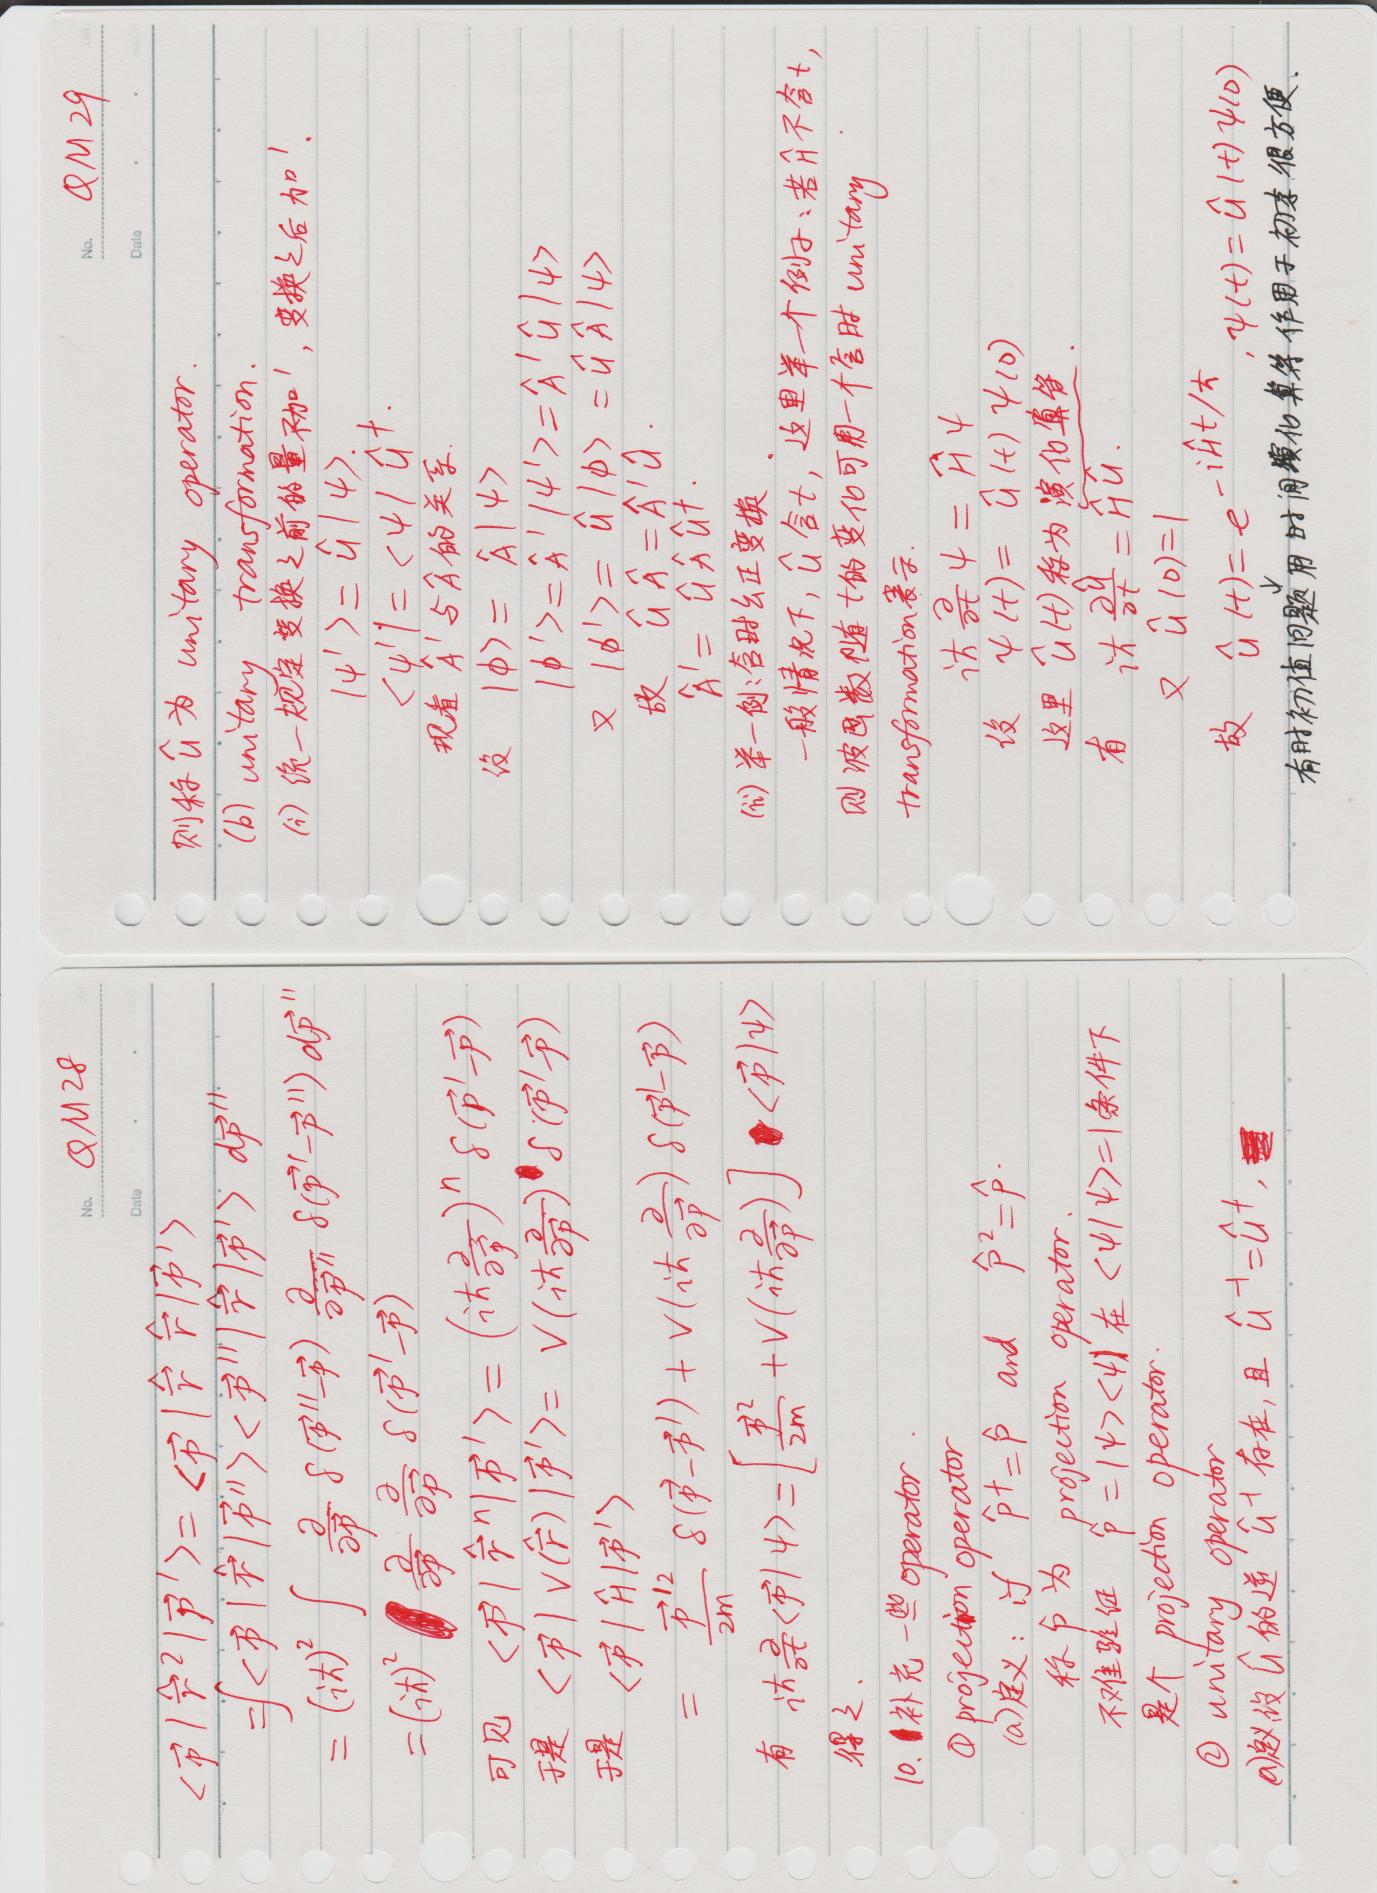 No. QM28
Date
⟨p⃗|r̂⃗²|p⃗'⟩ = ⟨p⃗|r̂⃗ r̂⃗|p⃗'⟩
= ∫⟨p⃗|r̂⃗|p⃗''⟩⟨p⃗''|r̂⃗|p⃗'⟩ dp⃗''
= (iħ)² ∫ ∂/∂p⃗ δ(p⃗''-p⃗) ∂/∂p⃗'' δ(p⃗'-p⃗'') dp⃗''
= (iħ)² ∂/∂p⃗ ∂/∂p⃗ δ(p⃗'-p⃗)
可见 ⟨p⃗|r̂⃗ⁿ|p⃗'⟩ = (iħ ∂/∂p⃗)ⁿ δ(p⃗'-p⃗)
于是 ⟨p⃗|V(r̂⃗)|p⃗'⟩ = V(iħ ∂/∂p⃗) δ(p⃗'-p⃗)
于是 ⟨p⃗|Ĥ|p⃗'⟩
= p⃗'²/2m δ(p⃗-p⃗') + V(iħ ∂/∂p⃗) δ(p⃗'-p⃗)
有 iħ ∂/∂t ⟨p⃗|ψ⟩ = [p⃗²/2m + V(iħ ∂/∂p⃗)] ⟨p⃗|ψ⟩
得之.
10. 补充一些 operator.
① projection operator
(a)定义: if p̂† = p̂ and p̂² = p̂.
称 p̂ 为 projection operator.
不难验证 p̂ = |ψ⟩⟨ψ| 在 ⟨ψ|ψ⟩=1条件下
是个 projection operator.
② unitary operator
(a)定义设 Û 的逆 Û⁻¹ 存在, 且 Û⁻¹ = Û†,
No. QM29
Date
则称 Û 为 unitary operator.
(b) unitary transformation.
(i) 统一规定变换之前的量不加', 变换之后加'.
|ψ'⟩ = Û|ψ⟩.
⟨ψ'| = ⟨ψ|Û†.
现看 Â' 与 Â 的关系.
设 |φ⟩ = Â|ψ⟩
|φ'⟩ = Â'|ψ'⟩ = Â'Û|ψ⟩
又 |φ'⟩ = Û|φ⟩ = ÛÂ|ψ⟩
故 ÛÂ = Â'Û.
Â' = ÛÂÛ†.
(ii) 举一例:含时幺正变换.
一般情况下, Û 含t, 这里举一个例子: 若Ĥ不含t,
则波函数随t的变化可用一个含时 unitary
transformation表示.
iħ ∂/∂t ψ = Ĥψ
设 ψ(t) = Û(t)ψ(0)
这里 Û(t) 称为演化算符.
有 iħ ∂Û/∂t = ĤÛ.
又 Û(0)=1
故 Û(t) = e^{-iĤt/ħ}, ψ(t) = Û(t)ψ(0)
↓
有时初值问题用时间演化算符作用于初态很方便.